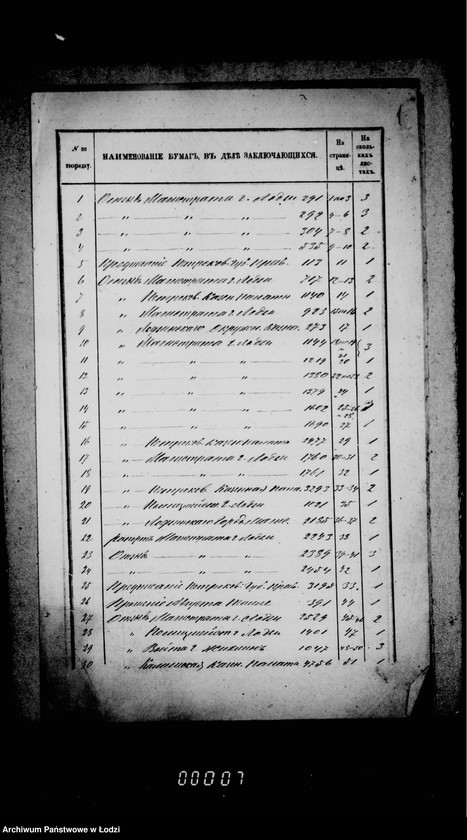 № по порядку.
НАИМЕНОВАНІЕ БУМАГЪ, ВЪ ДѢЛѢ ЗАКЛЮЧАЮЩИХСЯ.
На страницѣ.
На сколькихъ листахъ.
1 Отзывъ Магистрата г. Лодзи 291 1 по 3 3
2 " " " 292 4-6 3
3 " " " 304 7-8 2
4 " " " 535 9-10 2
5 Предписаніе Петроков. Губ. Прав. 113 11 1
6 Отзывъ Магистрата г. Лодзи 717 12-13 2
7 " Петроков. Казен. Палаты 1140 14 1
8 " Магистрата г. Лодзи 925 2
9 " Лодзинскаго 273 17 1
10 " Магистрата г. Лодзи 1144 3
11 " " " 1219 20 1
12 " " " 1330 2
13 " " " 1379 24 1
14 " " " 1602
15 " " " 1690 27 1
16 " Петроков. Казен. Палата 2977 29 1
17 " Магистрата г. Лодзи 1760 30-31 2
18 " " " 1761 32 1
19 " Петроков. Казенная Пала. 3293 33-34 2
20 " г. Лодзи 1121 35 1
21 " Лодзинскаго 2185 36-37 2
22 Рапортъ Магистрата г. Лодзи 2243 38 1
23 Отзывъ " " 2389 39-41 3
24 " " " 2454 42 1
25 Предписаніе Петроков. Губ. Прав. 3198 1
26 Прошеніе 391 44 1
27 Отзывъ Магистрата г. Лодзи 2529 2
28 " г. Лодзи 1401 47 1
29 " Войта г. 1047 48-50 3
30 " Калишская Казен. Палата 4756 51 1
00007
Archiwum Państwowe w Łodzi